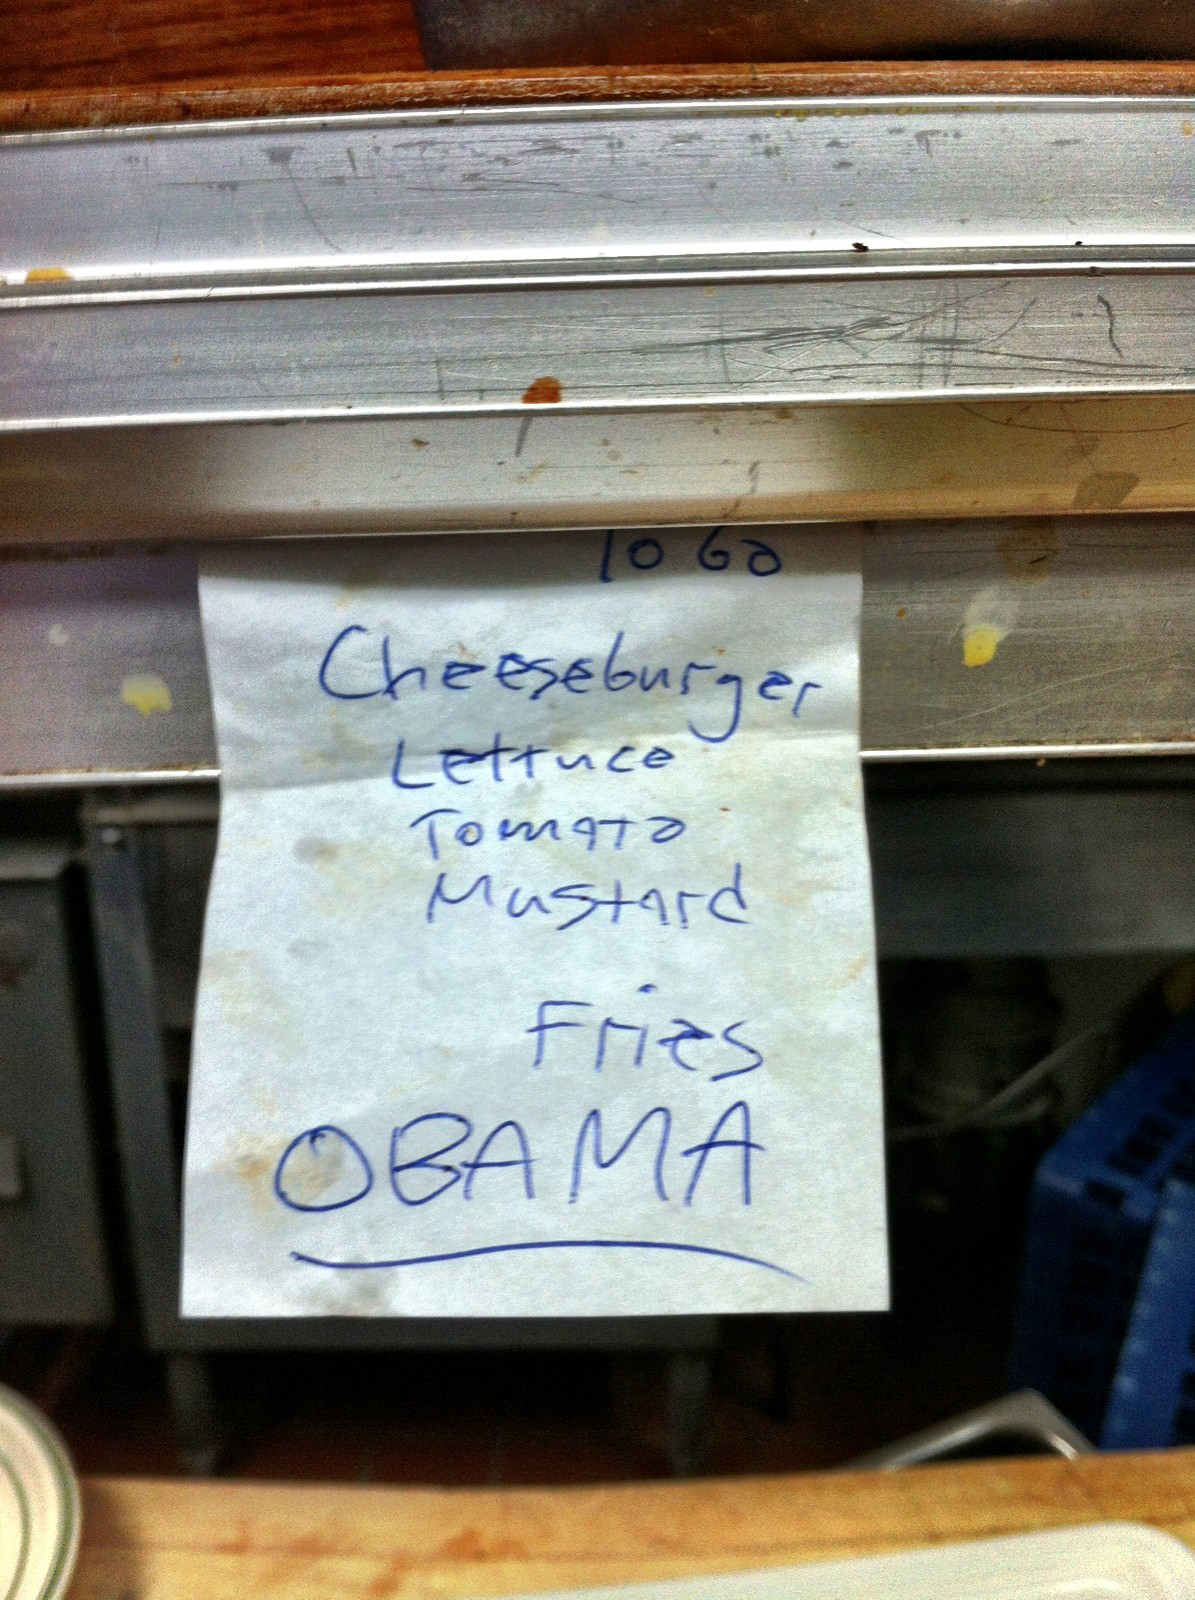 To Go
Cheeseburger
Lettuce
Tomato
Mustard
Fries
OBAMA